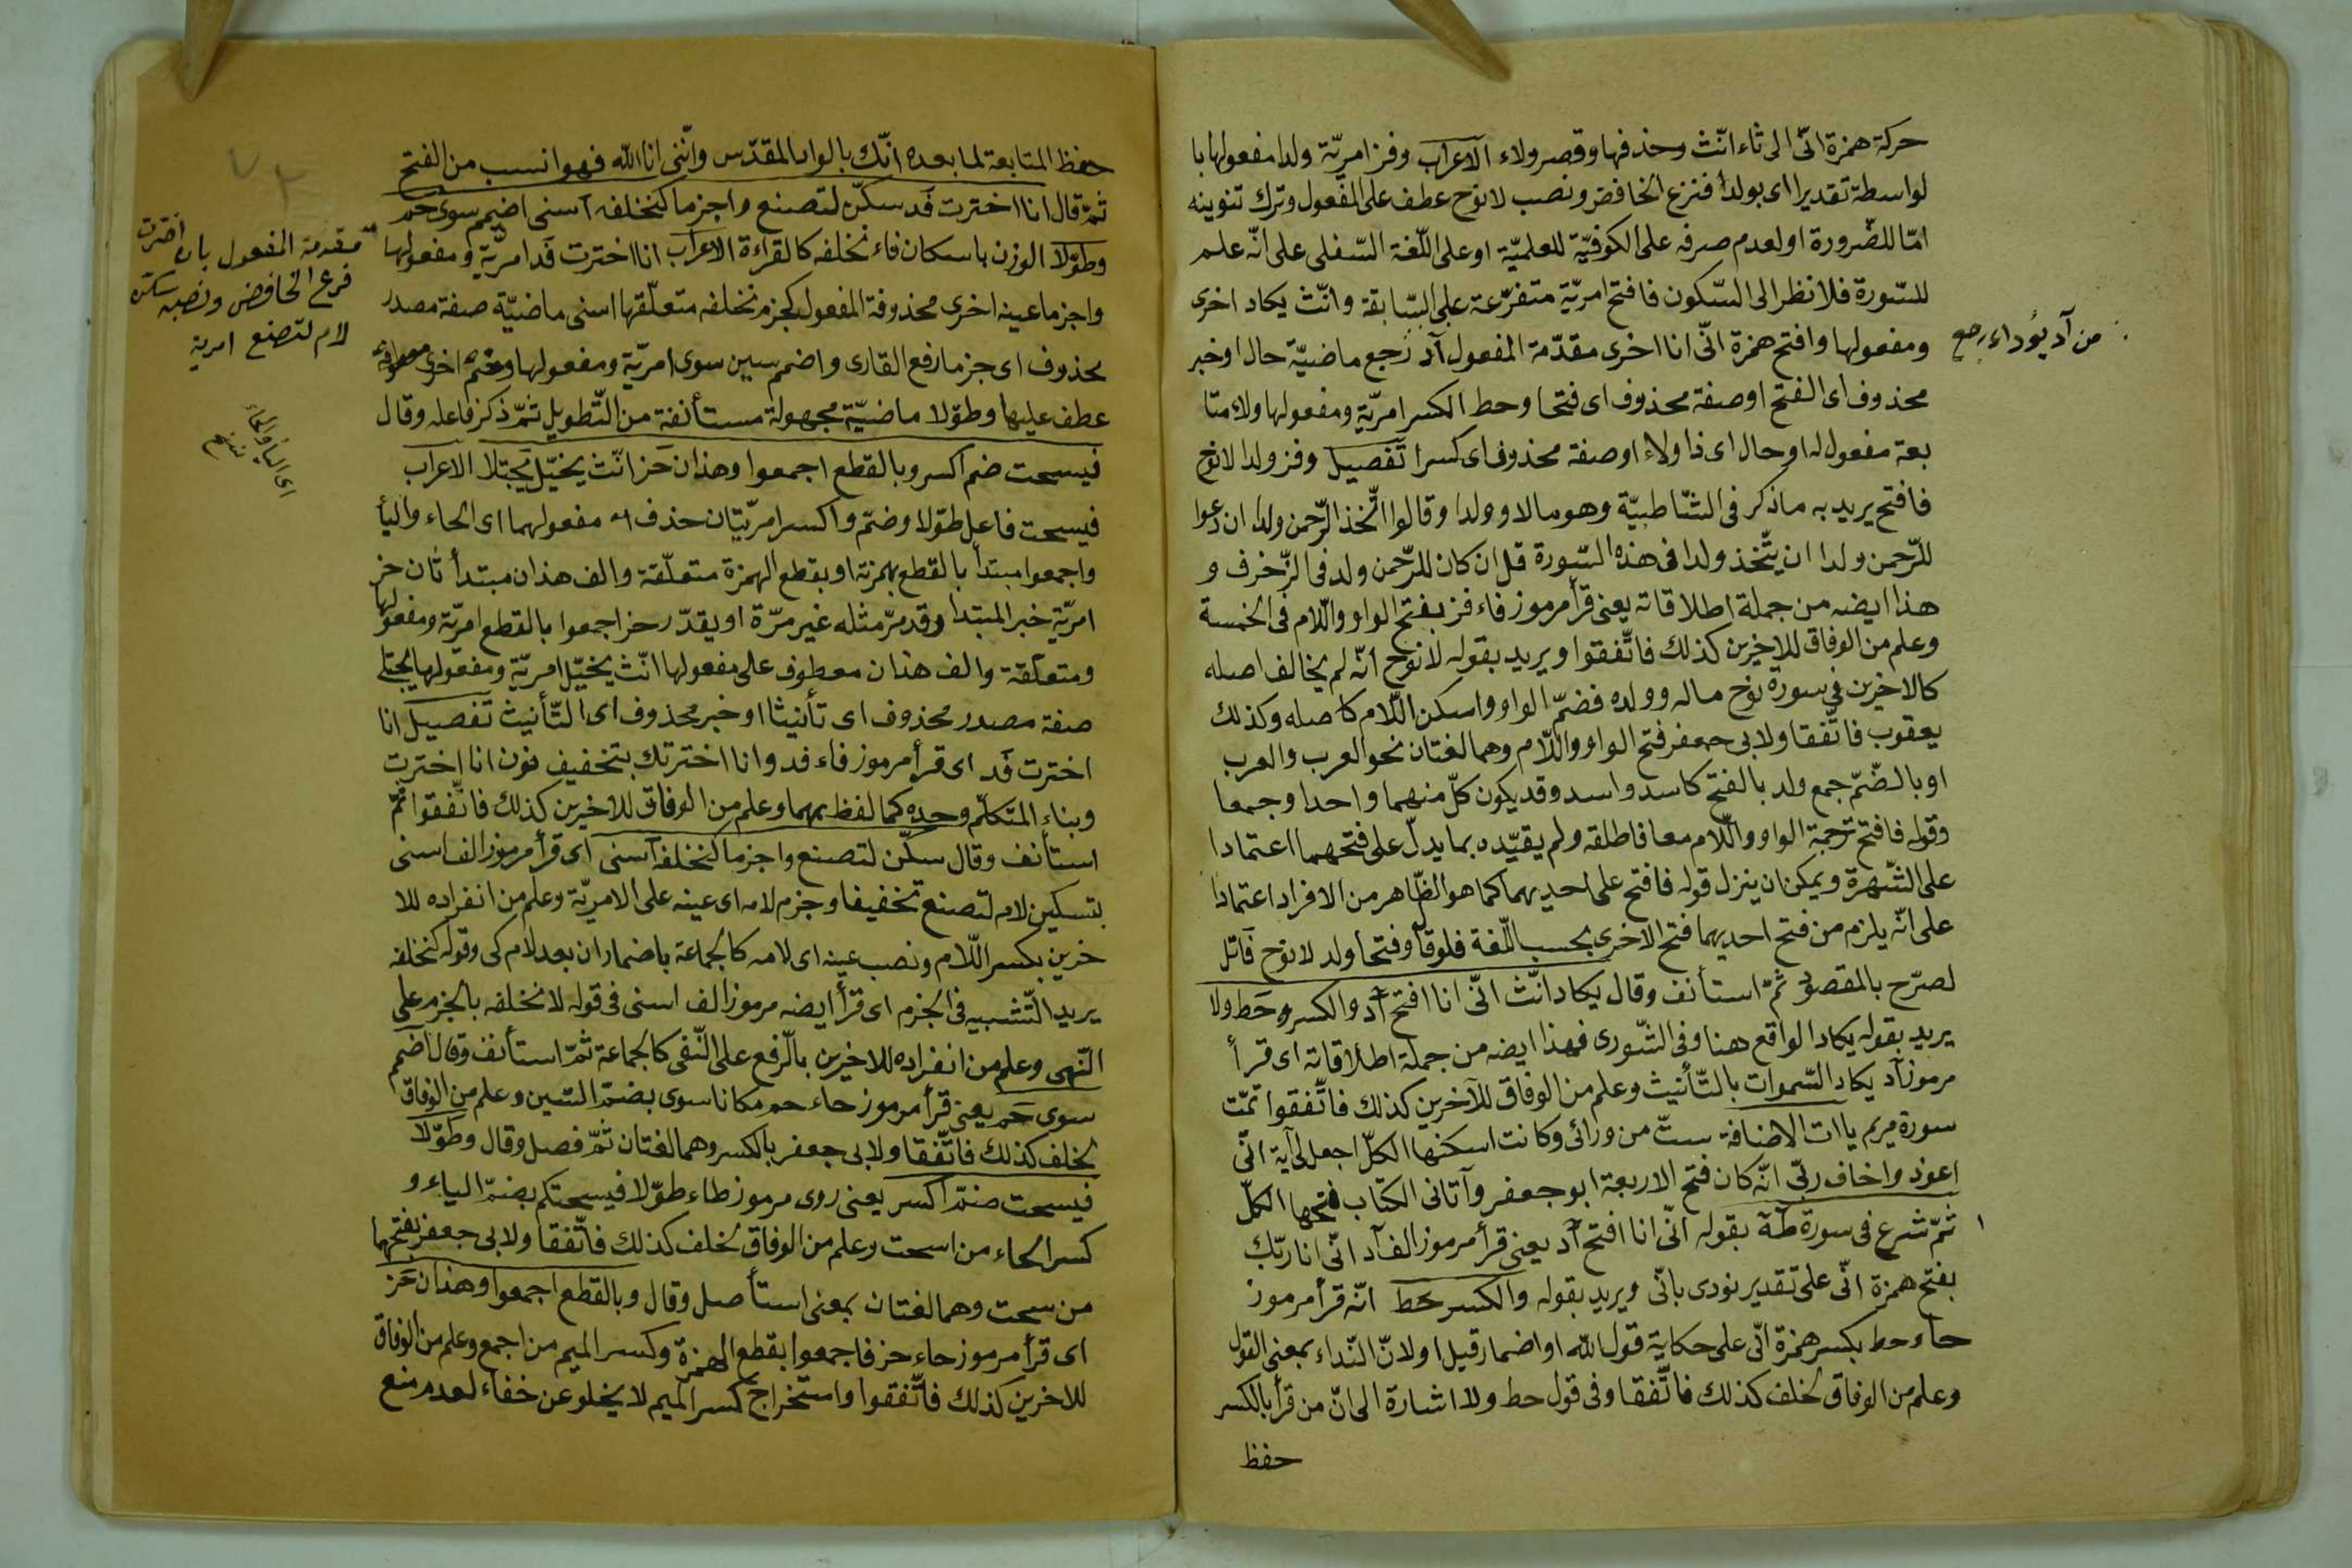 حركة همزة انّى الى ثاء انّث وحذفها وقصر ولاء الاعراب وفز امريّة ولدا مفعولها با
لواسطة تقديرا اى بولدا فنزع الخافض ونصب لا نوح عطف على المفعول وترك تنوينه
امّا للضّرورة او لعدم صرفه على الكوفيّة للعلميّة او على اللّغة السّفلى على انّه علم
للسّورة فلا نظر الى السّكون فافتح امريّة متفرّعة على السّابقة وانّث يكاد اخرى
ومفعولها وافتح همزة انّى انا اخرى مقدّمة المفعول آد رجع ماضيّة حال او خبر
من آد يؤداء رجع
محذوف اى الفتح او صفة محذوف اى فتحا وحط الكسر امريّة ومفعولها ولاء متا
بعة مفعول له او حال اى ذا ولاء او صفة محذوف اى كسرا تفصيل وفز ولدا لا نوح
فافتح يريد به ما ذكر فى الشّاطبيّة وهو مالا وولدا وقالوا اتّخذ الرّحمن ولدا ان دعوا
للرّحمن ولدا ان يتّخذ ولدا فى هذه السّورة قل ان كان للرّحمن ولد فى الزّخرف و
هذا ايضه من جملة اطلاقاته يعنى قرأ مرموز فاء فز بفتح الواو واللّام فى الخمسة
وعلم من الوفاق للاخرين كذلك فاتّفقوا ويريد بقوله لا نوح انّه لم يخالف اصله
كالاخرين فى سورة نوح ماله وولده فضمّ الواو واسكن اللّام كاصله وكذلك
يعقوب فاتّفقا ولابى جعفر فتح الواو واللّام وهما لغتان نحو العرب والعرب
او بالضّمّ جمع ولد بالفتح كاسد واسد وقد يكون كلّ منهما واحدا وجمعا
وقوله فافتح ترجمة الواو واللّام معا فاطلقه ولم يقيّده بما يدلّ على فتحهما اعتمادا
على الشّهرة ويمكن ان ينزل قوله فافتح على احديهما كما هو الظّاهر من الافراد اعتمادا
على انّه يلزم من فتح احديهما فتح الاخرى بحسب اللّغة فلو قال وفتحا ولد لا نوح قائل
لصرّح بالمقصود ثمّ استأنف وقال يكاد انّث انّى انا افتح آد والكسر حط ولا
يريد بقوله يكاد الواقع هنا وفى الشّورى فهذا ايضه من جملة اطلاقاته اى قرأ
مرموز آد يكاد السّموات بالتّأنيث وعلم من الوفاق للآخرين كذلك فاتّفقوا تمّت
سورة مريم ياات الاضافة ستّ من ورائى وكانت اسكنها الكلّ اجعل لى آية انّى
اعوذ واخاف ربّى انّه كان فتح الاربعة ابو جعفر وآتانى الكتاب فتحها الكلّ
ثمّ شرع فى سورة طه بقوله انّى انا افتح آد يعنى قرأ مرموز الف آد انّى انا ربّك
بفتح همزة انّى على تقدير نودى بانّى ويريد بقوله والكسر حط انّه قرأ مرموز
حاء حط بكسر همزة انّى على حكاية قول اللّه او اضمار قيل او لانّ النّداء بمعنى القول
وعلم من الوفاق لخلف كذلك فاتّفقا وفى قول حط ولا اشارة الى انّ من قرأ بالكسر
حفظ
حفظ المتابعة لما بعده انّك بالواد المقدّس وانّنى انا اللّه فهو انسب من الفتح
ثمّ قال انا اخترت فد سكّن لتصنع واجزما كنخلفه اسنى اضمم سوى حم
وطوّلا الوزن باسكان فاء نخلفه كالقراءة الاعراب انا اخترت فد امريّة ومفعولها
مقدمة المفعول بان اخترت
فنزع الخافض ونصبه سكن
لام لتصنع امرية
واجزما عينه اخرى محذوفة المفعول كجزم نخلفه متعلّقها اسنى ماضيّة صفة مصدر
محذوف اى جزما رفع القارى واضمم سين سوى امريّة ومفعولها
عطف عليها وطوّلا ماضيّة مجهولة مستأنفة من التّطويل ثمّ ذكر فاعله وقال
فيسحت ضم اكسر وبالقطع اجمعوا وهذان حز انّث يخيّل يجتلا الاعراب
اى الياء والحاء
فيسحت فاعل طوّلا وضمّ واكسر امريّتان حذف مفعولهما اى الحاء والياء
واجمعوا مبتدأ بالقطع بهمزته او بقطع الهمزة متعلّقة والف هذان مبتدأ ثان حز
امريّة خبر المبتدا وقد مرّ مثله غير مرّة او يقدّر حز اجمعوا بالقطع امريّة ومفعولها
ومتعلّقة والف هذان معطوف على مفعولها انّث يخيّل امريّة ومفعولها يجتلى
صفة مصدر محذوف اى تأنيثا او خبر محذوف اى التّأنيث تفصيل انا
اخترت فد اى قرأ مرموز فاء فد وانا اخترتك بتخفيف نون انا اخترت
وبناء المتكلّم وحده كما لفظ بهما وعلم من الوفاق للاخرين كذلك فاتّفقوا ثمّ
استأنف وقال سكّن لتصنع واجزما كنخلفه اسنى اى قرأ مرموز الف اسنى
بتسكين لام لتصنع تخفيفا وجزم لامه اى عينه على الامريّة وعلم من انفراده للا
خرين بكسر اللّام ونصب عينه اى لامه كالجماعة باضمار ان بعد لام كى وقوله كنخلفه
يريد التّشبيه فى الجزم اى قرأ ايضه مرموز الف اسنى فى قوله لا نخلفه بالجزم على
النّهى وعلم من انفراده للاخرين بالرّفع على النّفى كالجماعة ثمّ استأنف وقال اضمم
سوى حم يعنى قرأ مرموز حاء حم مكانا سوى بضمّ السّين وعلم من الوفاق
لخلف كذلك فاتّفقا ولابى جعفر بالكسر وهما لغتان ثمّ فصل وقال وطوّلا
فيسحت ضمّ اكسر يعنى روى مرموز طاء طوّلا فيسحتكم بضمّ الياء و
كسر الحاء من اسحت وعلم من الوفاق لخلف كذلك فاتّفقا ولابى جعفر بفتحهما
من سحت وهما لغتان بمعنى استأصل وقال وبالقطع اجمعوا وهذان حز
اى قرأ مرموز حاء حز فاجمعوا بقطع الهمزة وكسر الميم من اجمع وعلم من الوفاق
للاخرين كذلك فاتّفقوا واستخراج كسر الميم لا يخلو عن خفاء لعدم منع